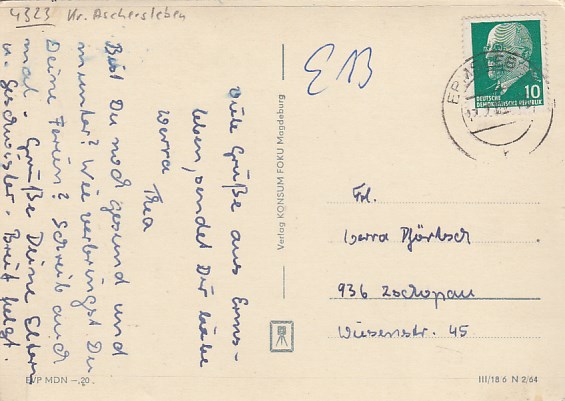 4323 Kr. Aschersleben
Viele Grüße aus Erms-
leben, sendet Dir liebe
Werra Thea
Bist Du noch gesund und
munter? Wie verbringst Du
Deine Ferien? Schreib auch
mal. Grüße Deine Eltern
u. Geschwister. Brief folgt.
EVP MDN –,20
Verlag KONSUM FOKU Magdeburg
E13
10
DEUTSCHE
DEMOKRATISCHE REPUBLIK
Frl.
Werra
936 Zschopau
Wiesenstr. 45
III/18 6 N 2/64